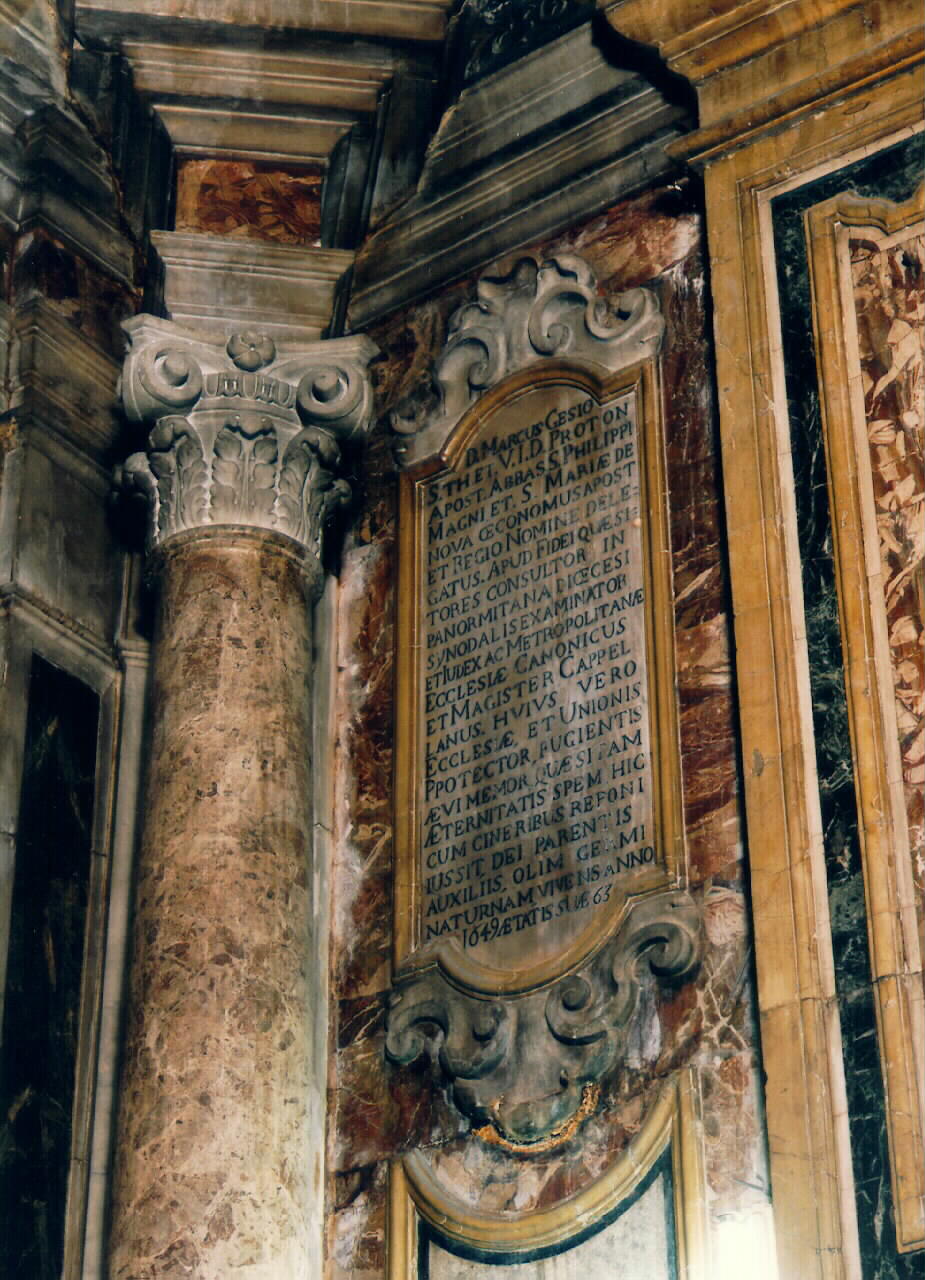 D. MARCUS GESIO
S. TH ET. V. I. D. PROTON
APOST. ABBAS S. PHILIPPI
MAGNI ET. S. MARIÆ DE
NOVA ŒCONOMUS APOST
ET REGIO NOMINE DELE=
GATUS. APUD FIDEI QUÆSI=
TORES CONSULTOR IN
PANORMITANA DIŒCESI
SYNODALIS EXAMINATOR
ET IUDEX AC METROPOLITANÆ
ECCLESIÆ CANONICUS
ET MAGISTER CAPPEL
LANUS. HVIVS VERO
ECCLESIÆ, ET UNIONIS
PPOTECTOR, FUGIENTIS
ÆVI MEMOR QUÆSITAM
ÆTERNITATIS SPEM HIC
CUM CINERIBUS REPONI
IUSSIT, DEI PARENTIS
AUXILIIS, OLIM GERMI
NATURNAM VIVENS ANNO
1649 ÆTATIS SUÆ 63